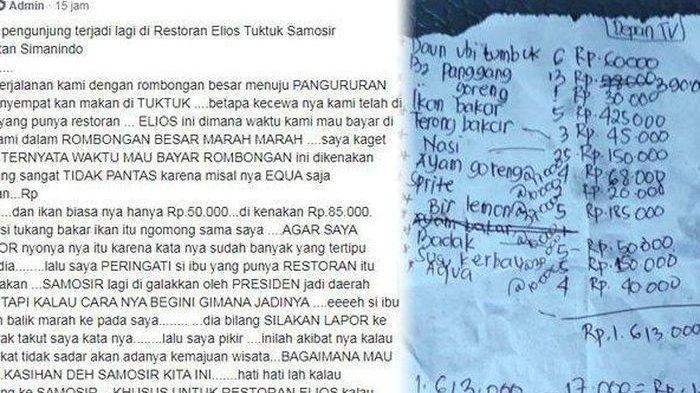 Admin · 15 jam
pengunjung terjadi lagi di Restoran Elios Tuktuk Samosir
tan Simanindo
....
erjalanan kami dengan rombongan besar menuju PANGURURAN
nyempat kan makan di TUKTUK ....betapa kecewa nya kami telah di
yang punya restoran ... ELIOS ini dimana waktu kami mau bayar di
ami dalam ROMBONGAN BESAR MARAH MARAH ....saya kaget
TERNYATA WAKTU MAU BAYAR ROMBONGAN ini dikenakan
ng sangat TIDAK PANTAS karena misal nya EQUA saja
an...Rp
....dan ikan biasa nya hanya Rp.50.000...di kenakan Rp.85.000.
si tukang bakar ikan itu ngomong sama saya ....AGAR SAYA
OR nyonya nya itu karena kata nya sudah banyak yang tertipu
dia........lalu saya PERINGATI si ibu yang punya RESTORAN itu
akan ...SAMOSIR lagi di galakkan oleh PRESIDEN jadi daerah
TAPI KALAU CARA NYA BEGINI GIMANA JADINYA ....eeeeh si ibu
n balik marah ke pada saya........ ...dia bilang SILAKAN LAPOR ke
ak takut saya kata nya.......lalu saya pikir ....inilah akibat nya kalau
kat tidak sadar akan adanya kemajuan wisata...BAGAIMANA MAU
.KASIHAN DEH SAMOSIR KITA INI.......hati hati lah kalau
ng ke SAMOSIR KHUSUS UNTUK RESTORAN ELIOS kalau
Depan TV
Daun ubi tumbuk 6 Rp.60000
B2 Panggang 13 Rp.
goreng 1 Rp 30 000
Ikan bakar 5 Rp.425000
Terong bakar 3 Rp. 45 000
Nasi 25 Rp.150 000
Ayam goreng 4 Rp 68 000
Sprite Rp 20.000
Bir lemon 5 Rp.185 000
Ayam bakar
Badak 5 Rp.50.000
Susu kerbau Rp 150 000
Aqua 4 Rp 40 000
Rp.1.613 000
1.613.000 17.000 = Rp